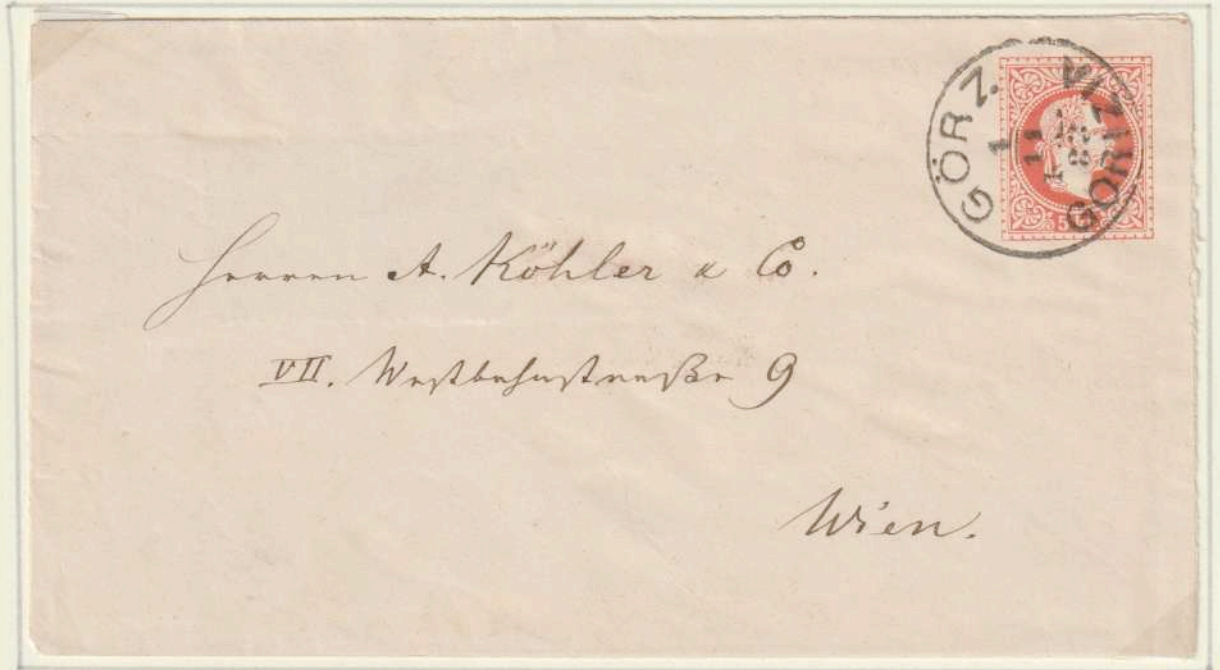 GÖRZ.
GORIZIA
1
11
5
Herren A. Köhler & Co.
VII. Westbahnstraße 9
Wien.